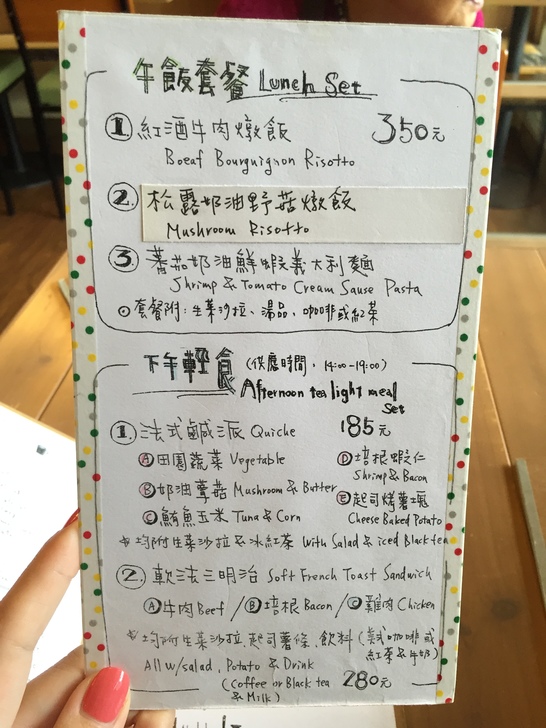 午飯套餐 Lunch Set
1. 紅酒牛肉燉飯 350元
Boeaf Bourguignon Risotto
2. 松露奶油野菇燉飯
Mushroom Risotto
3. 蕃茄奶油鮮蝦義大利麵
Shrimp & Tomato Cream Sause Pasta
套餐附:生菜沙拉、湯品、咖啡或紅茶
下午輕食 (供應時間,14:00-19:00)
Afternoon tea light meal
Set
1. 法式鹹派 Quiche 185元
A 田園蔬菜 Vegetable
B 奶油蘑菇 Mushroom & Butter
C 鮪魚玉米 Tuna & Corn
D 培根蝦仁
Shrimp & Bacon
E 起司烤薯塊
Cheese Baked Potato
* 均附生菜沙拉 & 冰紅茶 With Salad & iced Black tea
2. 軟法三明治 Soft French Toast Sandwich
A 牛肉 Beef / B 培根 Bacon / C 雞肉 Chicken
* 均附生菜沙拉、起司薯條、飲料(美式咖啡或
紅茶&牛奶)
All w/salad, Potato & Drink
(Coffee or Black tea
& Milk) 280元